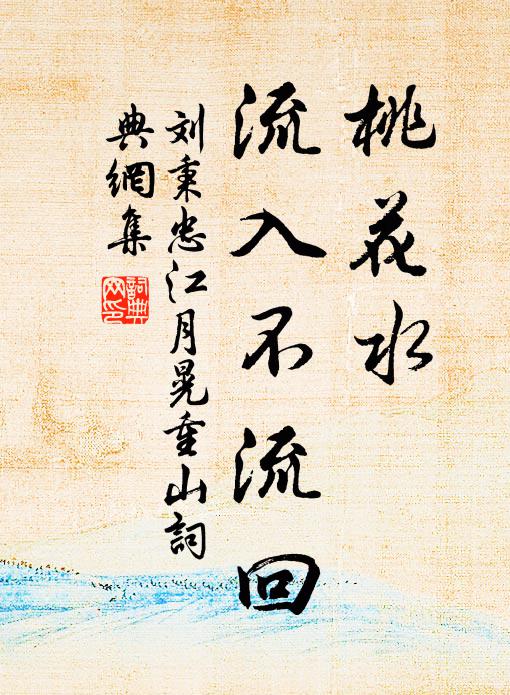 桃花水
流入不流回
刘秉忠江月晃重山詞
典網集
詞典网印